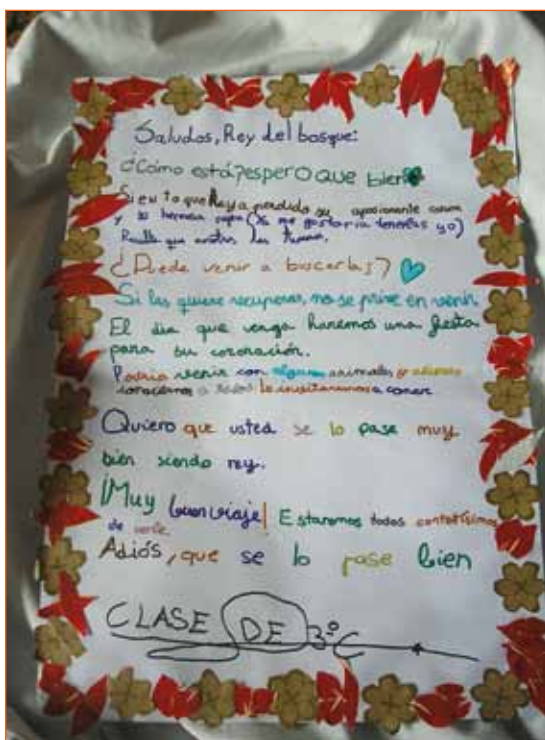 Saludos, Rey del bosque:
¿Cómo está? espero que bien
Siento que haya perdido su apasionante corona
y su hermosa capa (Ya me gustaría tenerlas yo)
Resulta que nosotros las tenemos.
¿Puede venir a buscarlas?
Si las quiere recuperar, no se prive en venir
El día que venga haremos una fiesta
para su coronación.
Podria venir con algunos animales, si
conocemos a todos le invitaremos a comer
Quiero que usted se lo pase muy
bien siendo rey.
¡Muy buen viaje! Estaremos todos contentísimos
de verle.
Adiós, que se lo pase bien
CLASE DE 3ºC